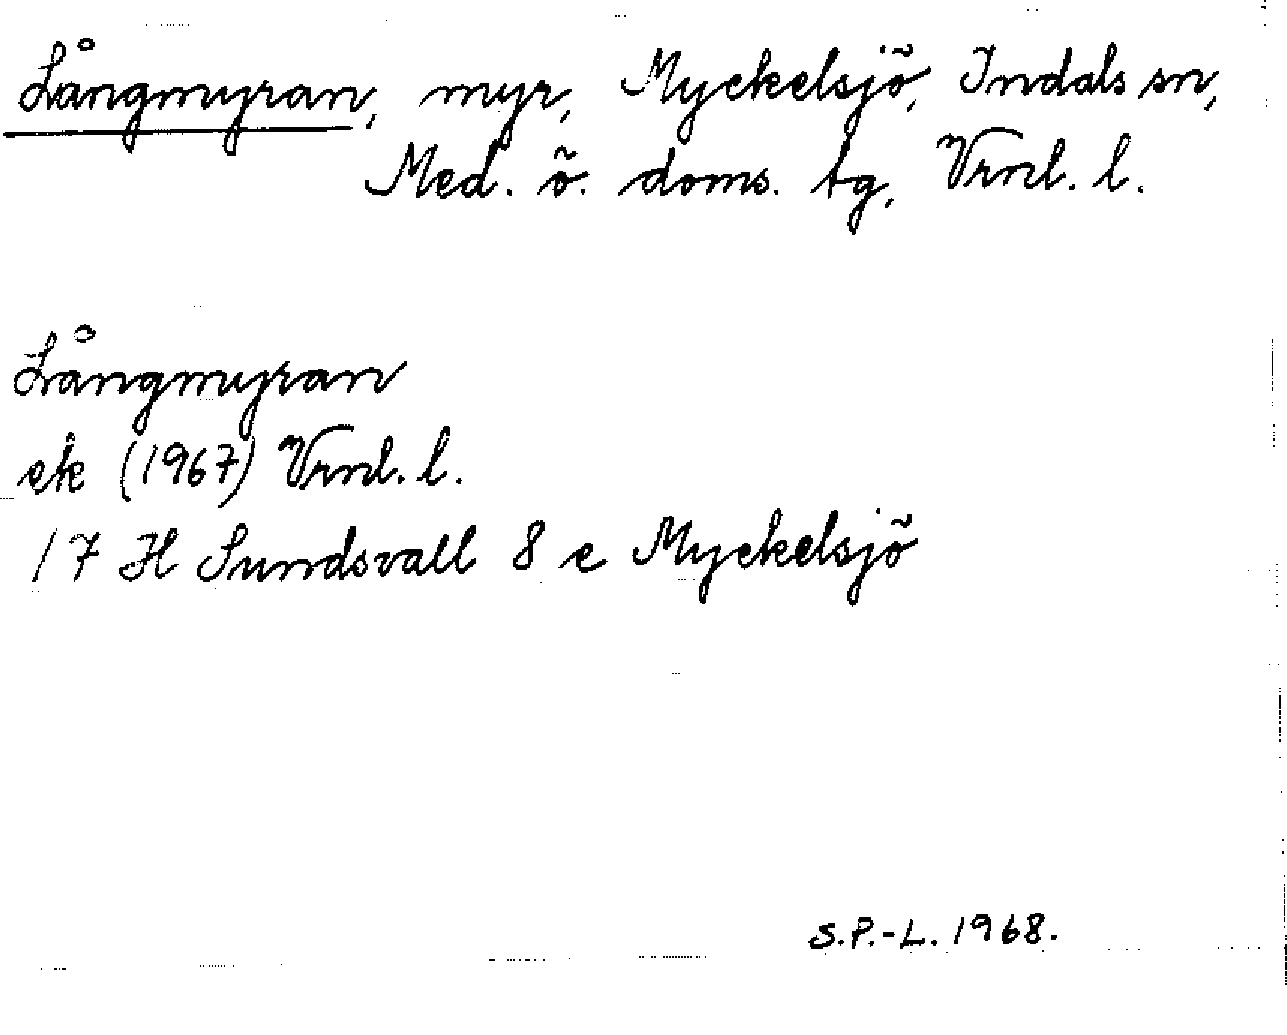 Långmyran, myr, Myckelsjö, Indals sn,
Med. ö. doms. tg, Vrnl. l.
Långmyran
ek (1967) Vrnl. l.
17 H Sundsvall 8 e Myckelsjö
S.P.-L. 1968.